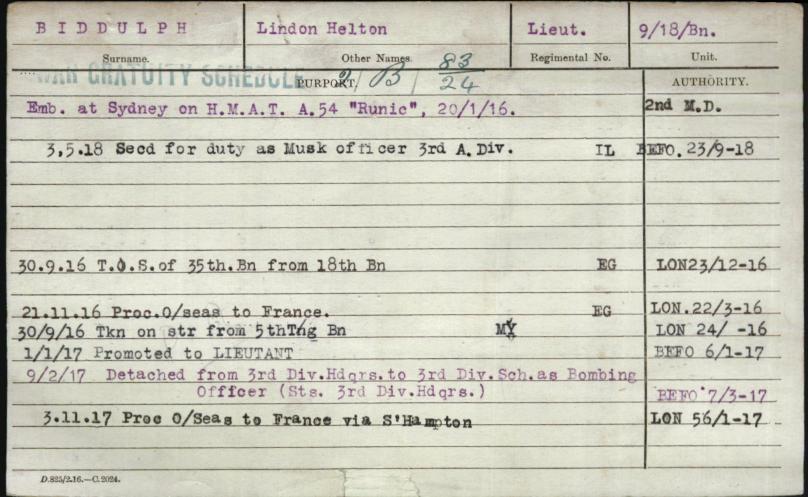 BIDDULPH Lindon Helton Lieut. 9/18/Bn.
Surname. Other Names. Regimental No. Unit.
WAR GRATUITY SCHEDULE 2/B 83/24
PURPORT. AUTHORITY.
Emb. at Sydney on H.M.A.T. A.54 "Runic", 20/1/16. 2nd M.D.
3,5.18 Secd for duty as Musk officer 3rd A.Div. IL BEFO.23/9-18
30.9.16 T.O.S.of 35th.Bn from 18th Bn EG LON23/12-16
21.11.16 Proc.O/seas to France. EG LON.22/3-16
30/9/16 Tkn on str from 5thTng Bn MY LON 24/ -16
1/1/17 Promoted to LIEUTANT BEFO 6/1-17
9/2/17 Detached from 3rd Div.Hdqrs.to 3rd Div.Sch.as Bombing
Officer (Sts. 3rd Div.Hdqrs.) BEFO 7/3-17
3.11.17 Proc O/Seas to France via S'Hampton LON 56/1-17
D.825/2.16.—C.2024.